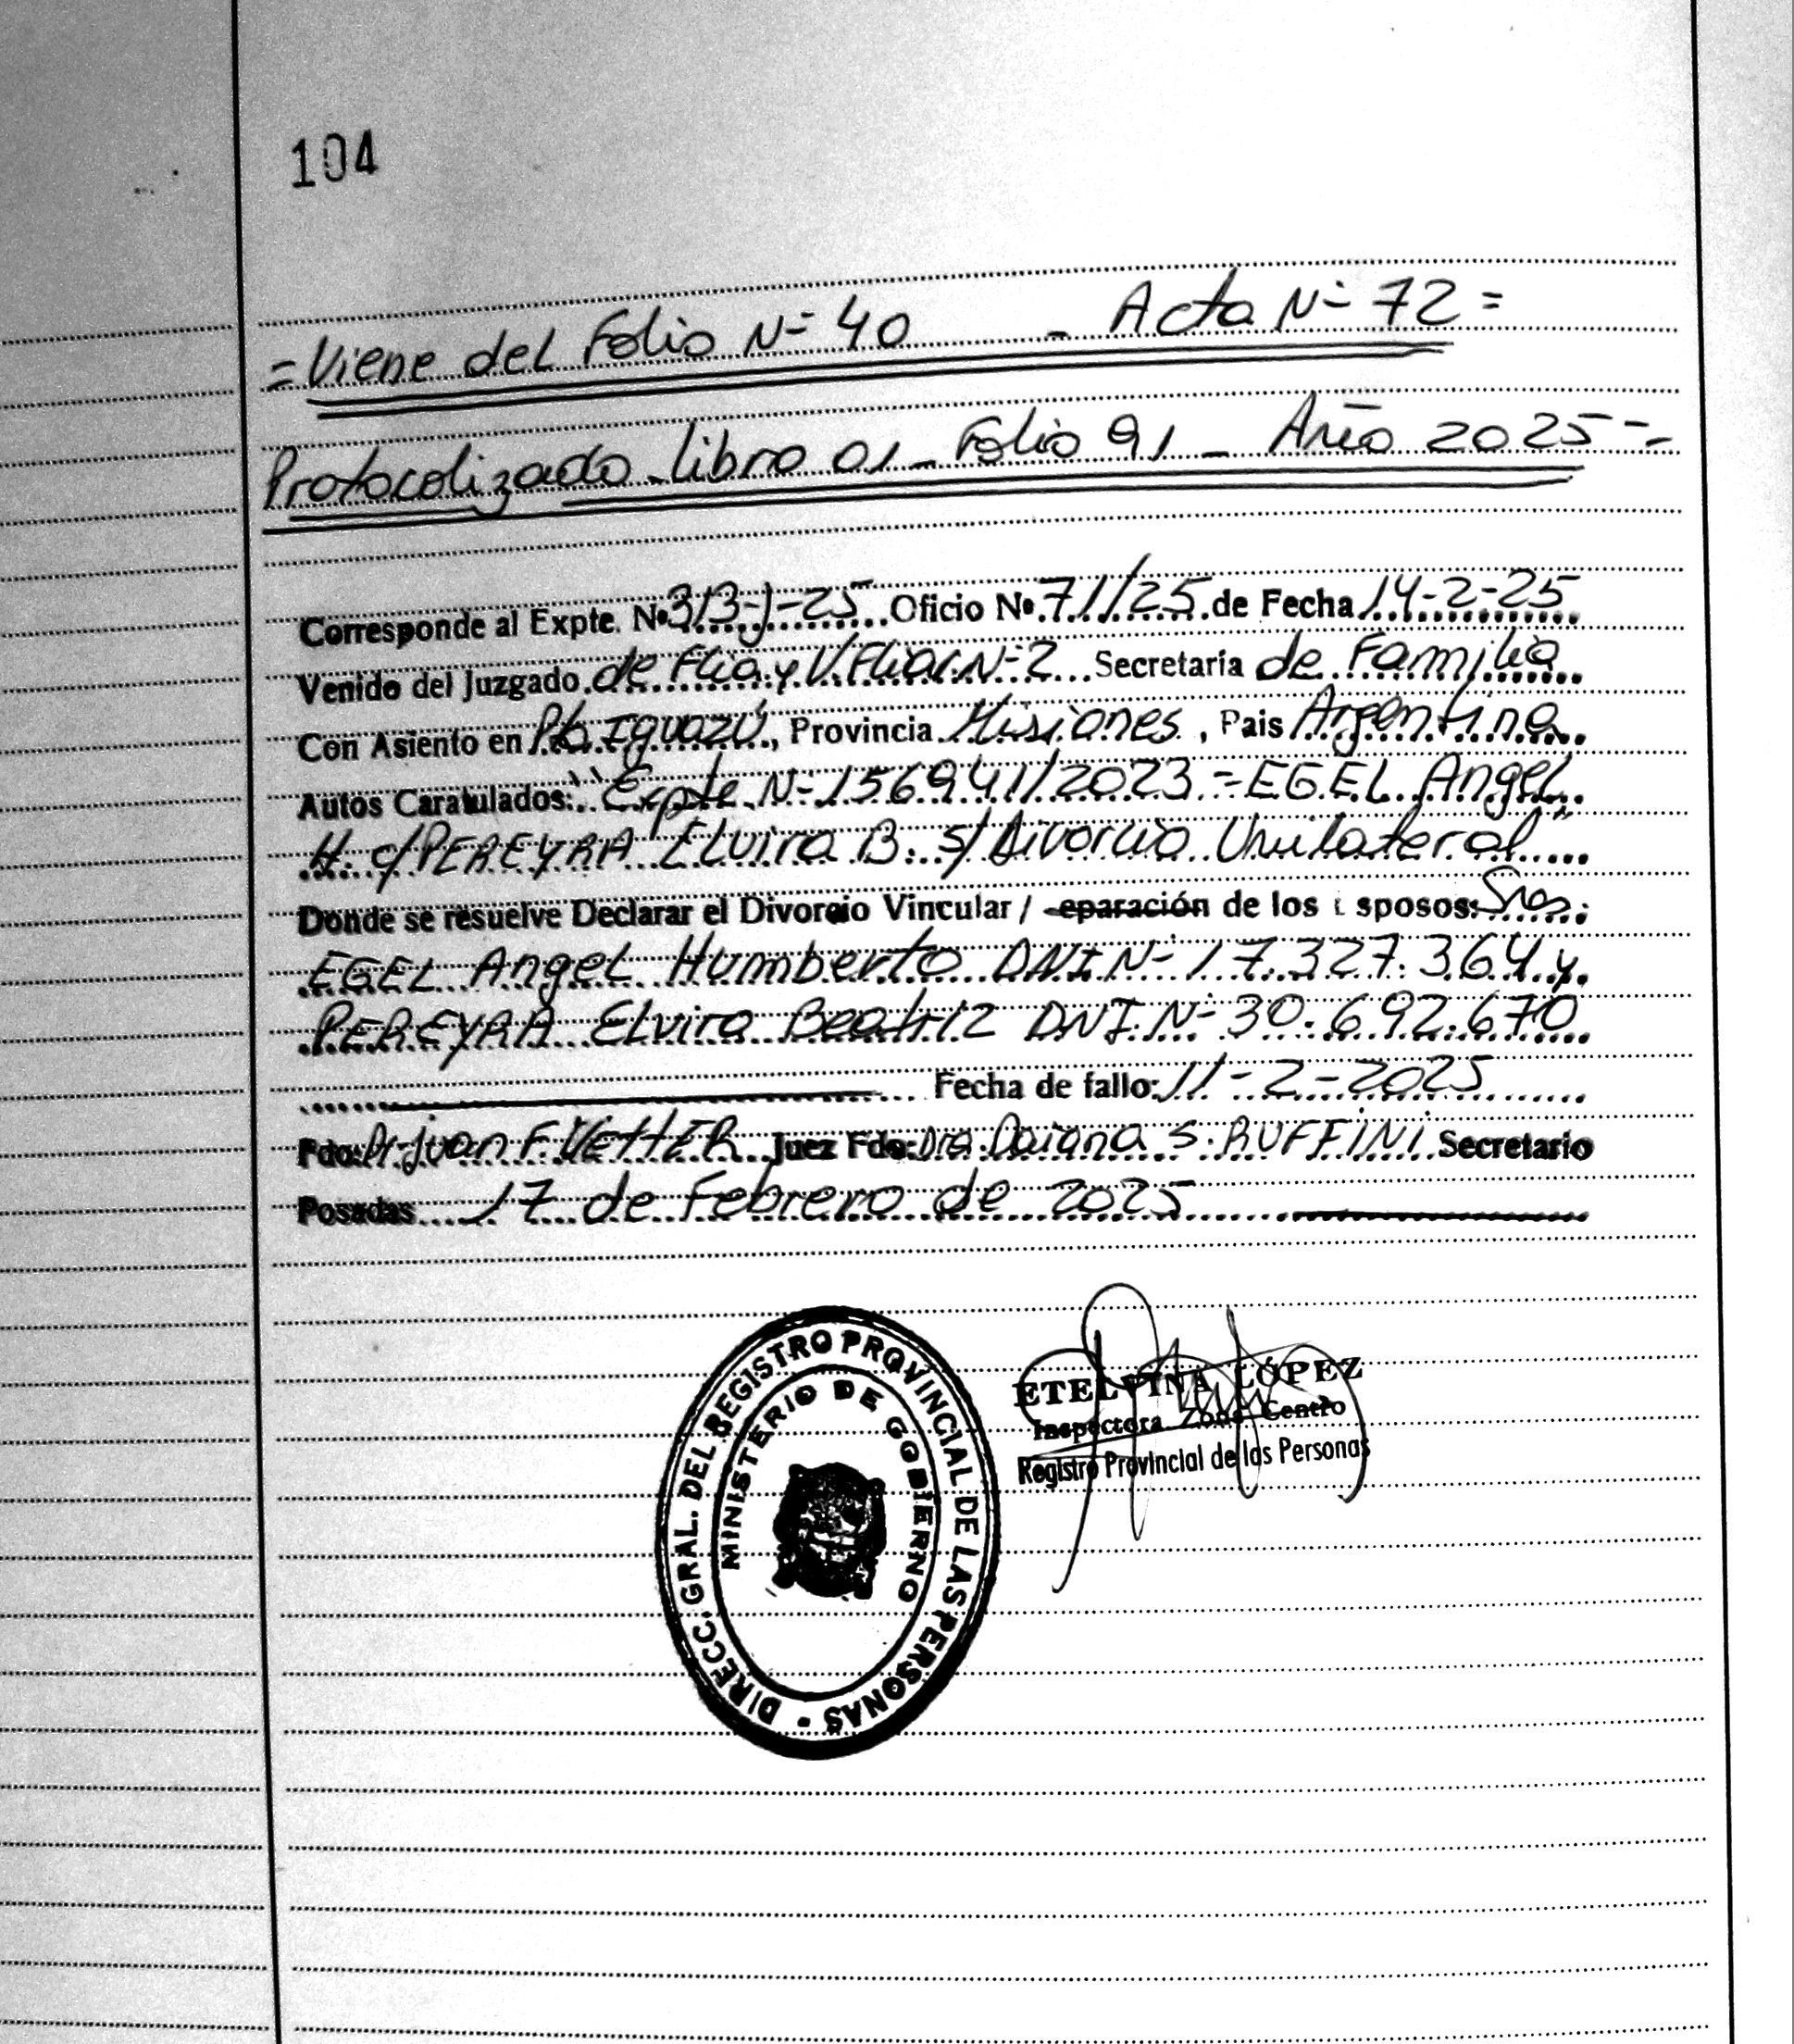 104
= Viene del Folio Nº 40 - Acta Nº 72 =
Protocolizado - libro 01 - Folio 91 - Año 2025 =
Corresponde al Expte. Nº 313-J-25 Oficio Nº 71/25 de Fecha 14-2-25
Venido del Juzgado de Flia y V. Fliar Nº 2 Secretaría de Familia
Con Asiento en Pto Iguazú, Provincia Misiones, Pais Argentina
Autos Caratulados: "Expte Nº 156941/2023 = EGEL Angel
H. c/ PEREYRA Elvira B. s/ Divorcio Unilateral"
Donde se resuelve Declarar el Divorcio Vincular / eparación de los sposos: Sres.
EGEL Angel Humberto DNI Nº 17.327.364 y
PEREYRA Elvira Beatriz DNI Nº 30.692.670
Fecha de fallo: 11-2-2025
Fdo: Dr. Juan F. VETTER Juez Fdo: Dra. Daiana S. RUFFINI Secretario
Posadas 17 de Febrero de 2025
DIRECC. GRAL. DEL REGISTRO PROVINCIAL DE LAS PERSONAS -
MINISTERIO DE GOBIERNO
ETELVINA LÓPEZ
Inspectora Zona Centro
Registro Provincial de las Personas